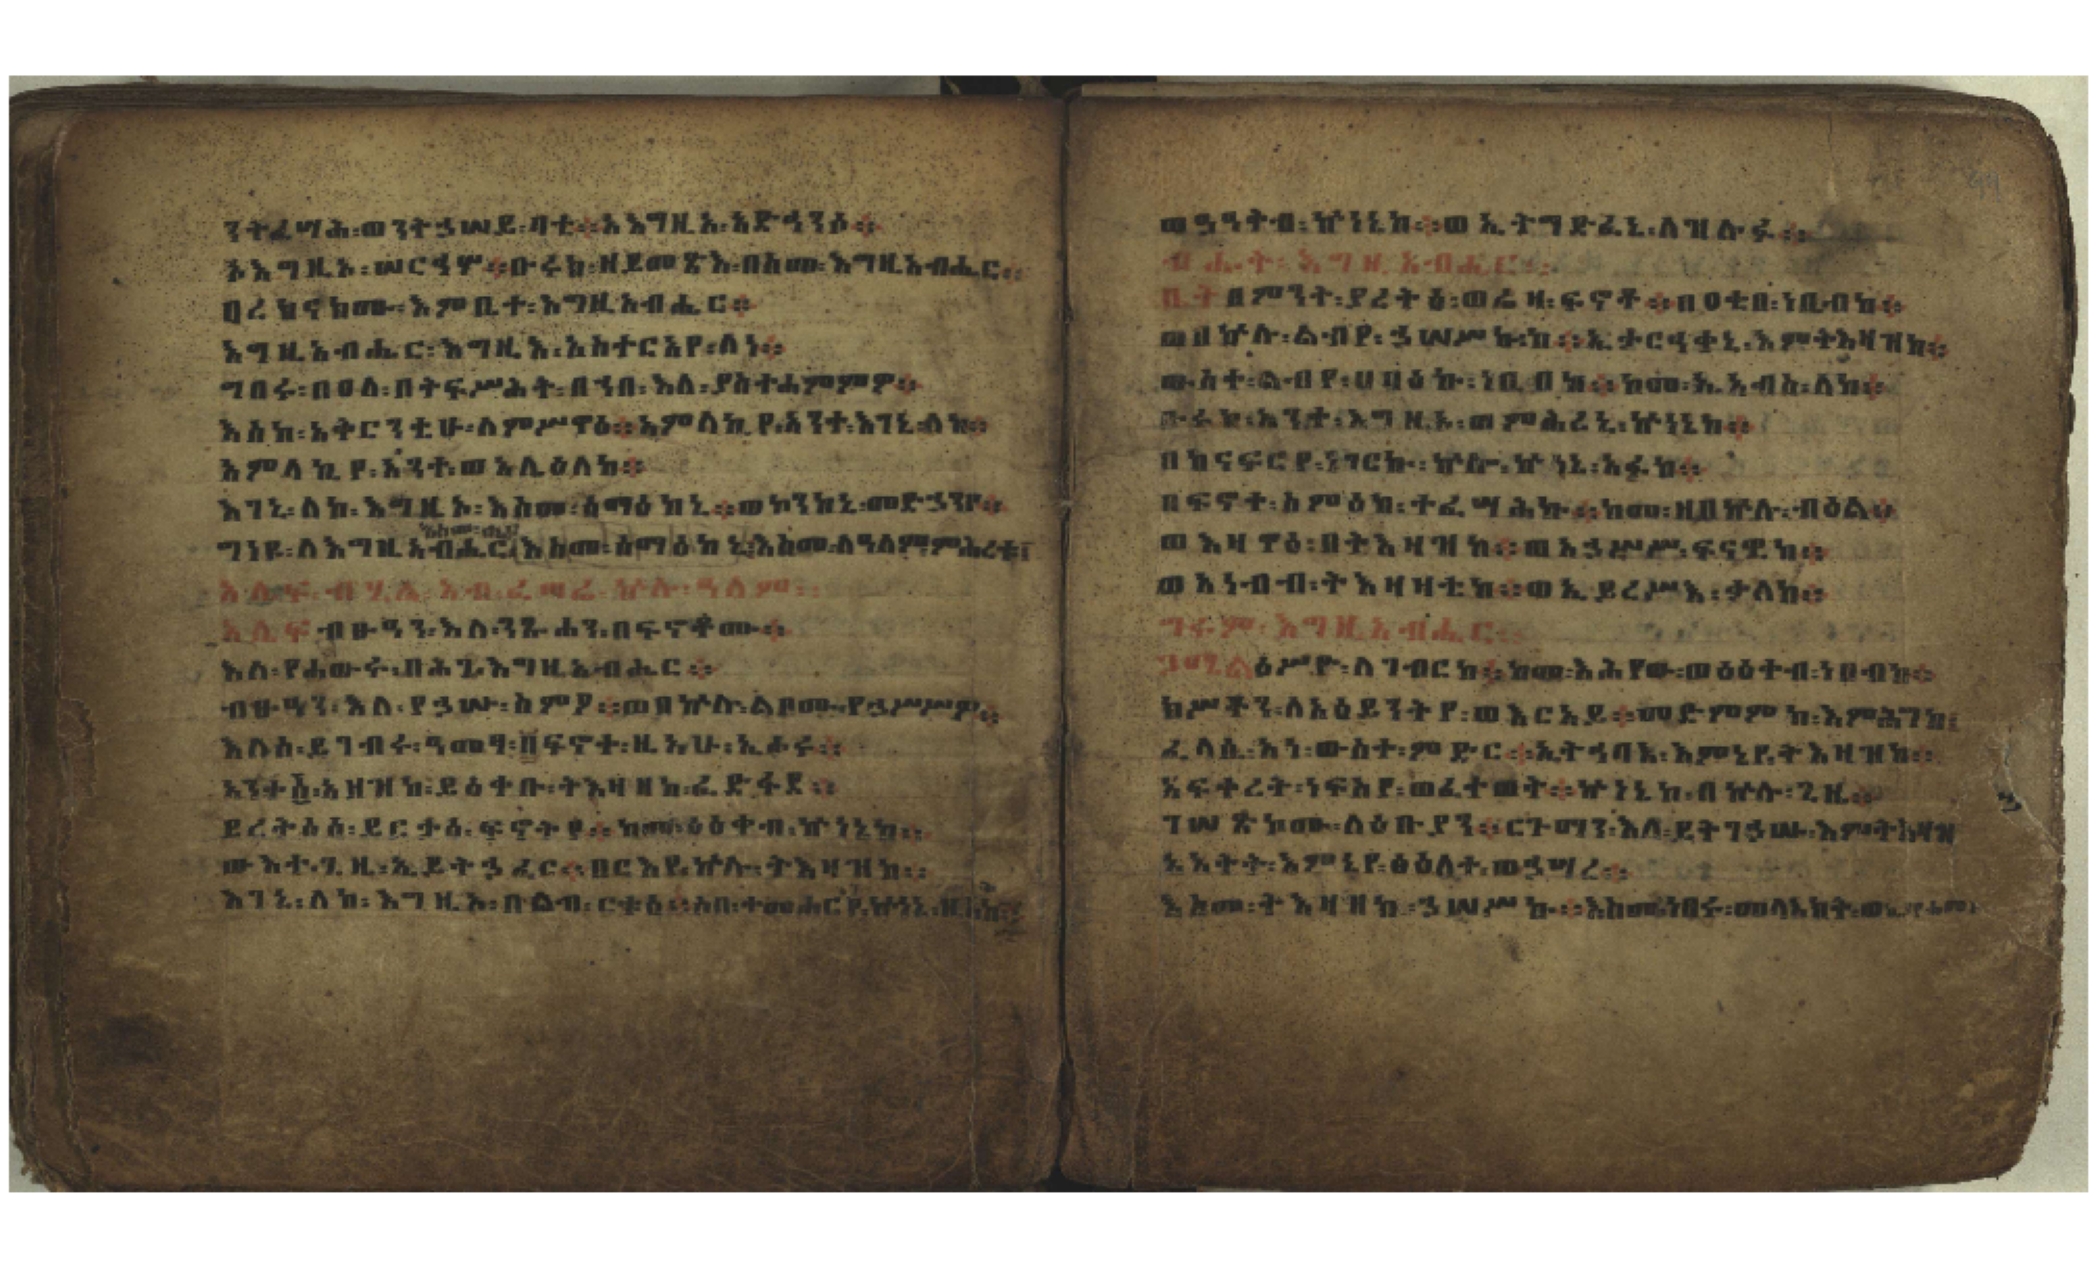 ንትፈሣሕ፡ወንትኃሠይ፡ባቲ፡፡አእግዚኦ፡አድኅንሶ፡፡
ኦእግዚኦ፡ሠርዓሞ፡፡ቡሩክ፡ዘይመጽእ፡በስመ፡እግዚአብሔር፡፡
ባረክናክሙ፡እምቤተ፡እግዚአብሔር፡፡
እግዚአብሔር፡እግዚእ፡አስተርአየ፡ለነ፡፡
ግበሩ፡በዐለ፡በትፍሥሕት፡በኀበ፡እለ፡ያስተሐምምዎ፡፡
እስከ፡አቅርንቲሁ፡ለምሥዋዕ፡፡አምላኪየ፡አንተ፡እገኒ፡ለከ፡፡
አምላኪየ፡አንተ፡ወአሌዕለከ፡፡
እገኒ፡ለከ፡እግዚኦ፡እስመ፡ሰማዕከኒ፡፡ወኮንከኒ፡መድኃንየ፡፡
ግነዩ፡ለእግዚአብሔር፡እስመ፡ሰማዕከኒ፡እስመ፡ለዓለም፡ምሕረቱ፡
አሌፍ፡ብሂል፡አብ፡ፈጣሬ፡ኵሉ፡ዓለም፡፡
አሌፍ፡ብፁዓን፡እለ፡ንጹሐን፡በፍኖቶሙ፡፡
እለ፡የሐውሩ፡በሕገ፡እግዚአብሔር፡፡
ብፁዓን፡እለ፡የኃሡ፡ስምዖ፡፡ወበኵሉ፡ልቦሙ፡የኃሥሥዎ፡፡
እለሰ፡ይገብሩ፡ዓመፃ፡በፍኖተ፡ዚአሁ፡ኢሖሩ፡፡
አንተ፡አዘዝከ፡ይዕቀቡ፡ትእዛዘከ፡ፈድፋደ፡፡
ይረትዕሰ፡ይርታዕ፡ፍኖትየ፡፡ከመ፡ዕዕቀብ፡ኵነኔከ፡፡
ውእተ፡ጊዜ፡ኢይትኃፈር፡፡በርእየ፡ኵሉ፡ትእዛዝከ፡፡
እገኒ፡ለከ፡እግዚኦ፡በልብ፡ርቱዕ፡፡ሶበ፡ተመሐርየ፡ኵነኔ፡
ወዓዓትብ፡ኵነኔከ፡፡ወኢትግድፈኒ፡ለዝሉፉ፡፡
ብሔት፡እግዚአብሔር፡፡
ቤት፡በምንት፡ያረትዕ፡ወሬዛ፡ፍኖቶ፡፡በዐቂበ፡ነቢብከ፡፡
ወበኵሉ፡ልብየ፡ኃሠሥኩከ፡፡ኢታርሳቀኒ፡እምትእዛዝከ፡፡
ውስተ፡ልብየ፡ሀባዕኩ፡ነቢበከ፡፡ከመ፡ኢአብስ፡ለከ፡፡
ቡሩክ፡አንተ፡እግዚኦ፡ወምሕረኒ፡ኵነኔከ፡፡
በከናፍርየ፡ነገርኩ፡ኵሎ፡ኵነኔ፡አፉከ፡፡
በፍኖተ፡ስምዕከ፡ተፈሣሕኩ፡፡ከመ፡ዘበኵሉ፡ብዕል፡
ወእዛዋዕ፡በትእዛዝከ፡፡ወአኃሥሥ፡ፍናዊከ፡፡
ወእነብብ፡ትእዛዛቲከ፡፡ወኢይረሥእ፡ቃለከ፡፡
ግሩም፡እግዚአብሔር፡፡
ጋሜል፡ዕሥዮ፡ለገብርከ፡፡ከመ፡እሕየው፡ወዕዕቀብ፡ነቢብከ፡፡
ክሥቶን፡ለአዕይንትየ፡ወእርአይ፡፡መድምምከ፡እምሕገከ፡
ፈላሲ፡አነ፡ውስተ፡ምድር፡፡ኢትኅባእ፡እምኔየ፡ትእዛዝከ፡፡
አፍቀረት፡ነፍስየ፡ወፈተወት፡፡ኵነኔከ፡በኵሉ፡ጊዜ፡፡
ገሠጽኮሙ፡ለዕቡያን፡፡ርጉማን፡እለ፡ይትገኃሡ፡እምትእዛዝ
አእትት፡እምኔየ፡ፅዕለተ፡ወኃሣረ፡፡
እስመ፡ትእዛዘከ፡ኃሠሥኩ፡፡እስመ፡ነበሩ፡መላእክት፡